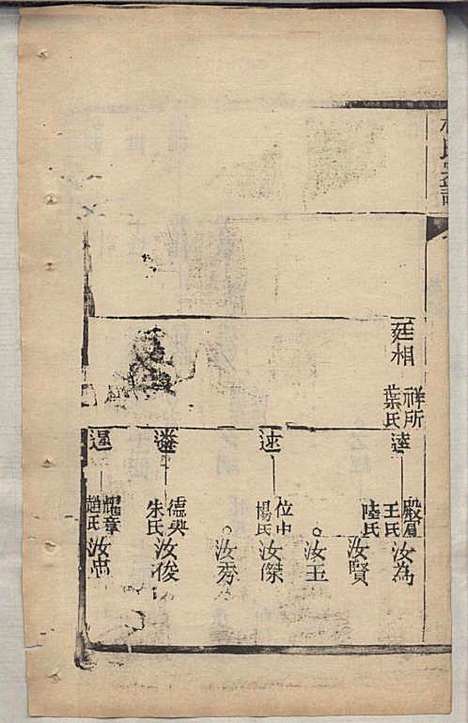 氏宗譜
廷相
祥所
葉氏
逵
殿眉
王氏
陸氏
汝為
汝賢
汝玉
速
位中
楊氏
汝傑
汝秀
遴
儒英
朱氏
汝俊
暹
耀章
趙氏
汝忠